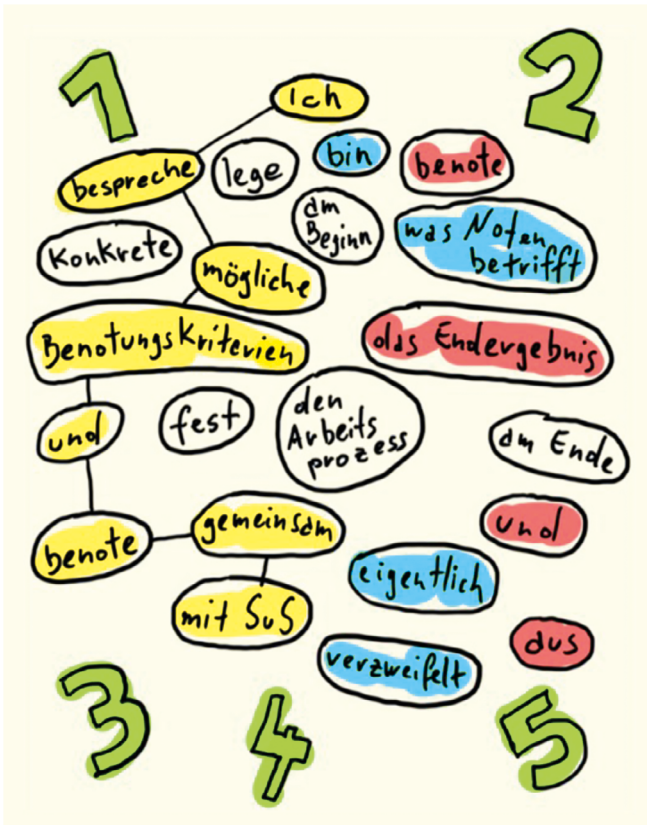 1
2
Ich
bespreche
lege
bin
benote
am
Beginn
was Noten
betrifft
Konkrete
mögliche
Benotungskriterien
das Endergebnis
und
fest
den
Arbeits
prozess
am Ende
benote
gemeinsam
und
eigentlich
mit SuS
aus
verzweifelt
3
4
5